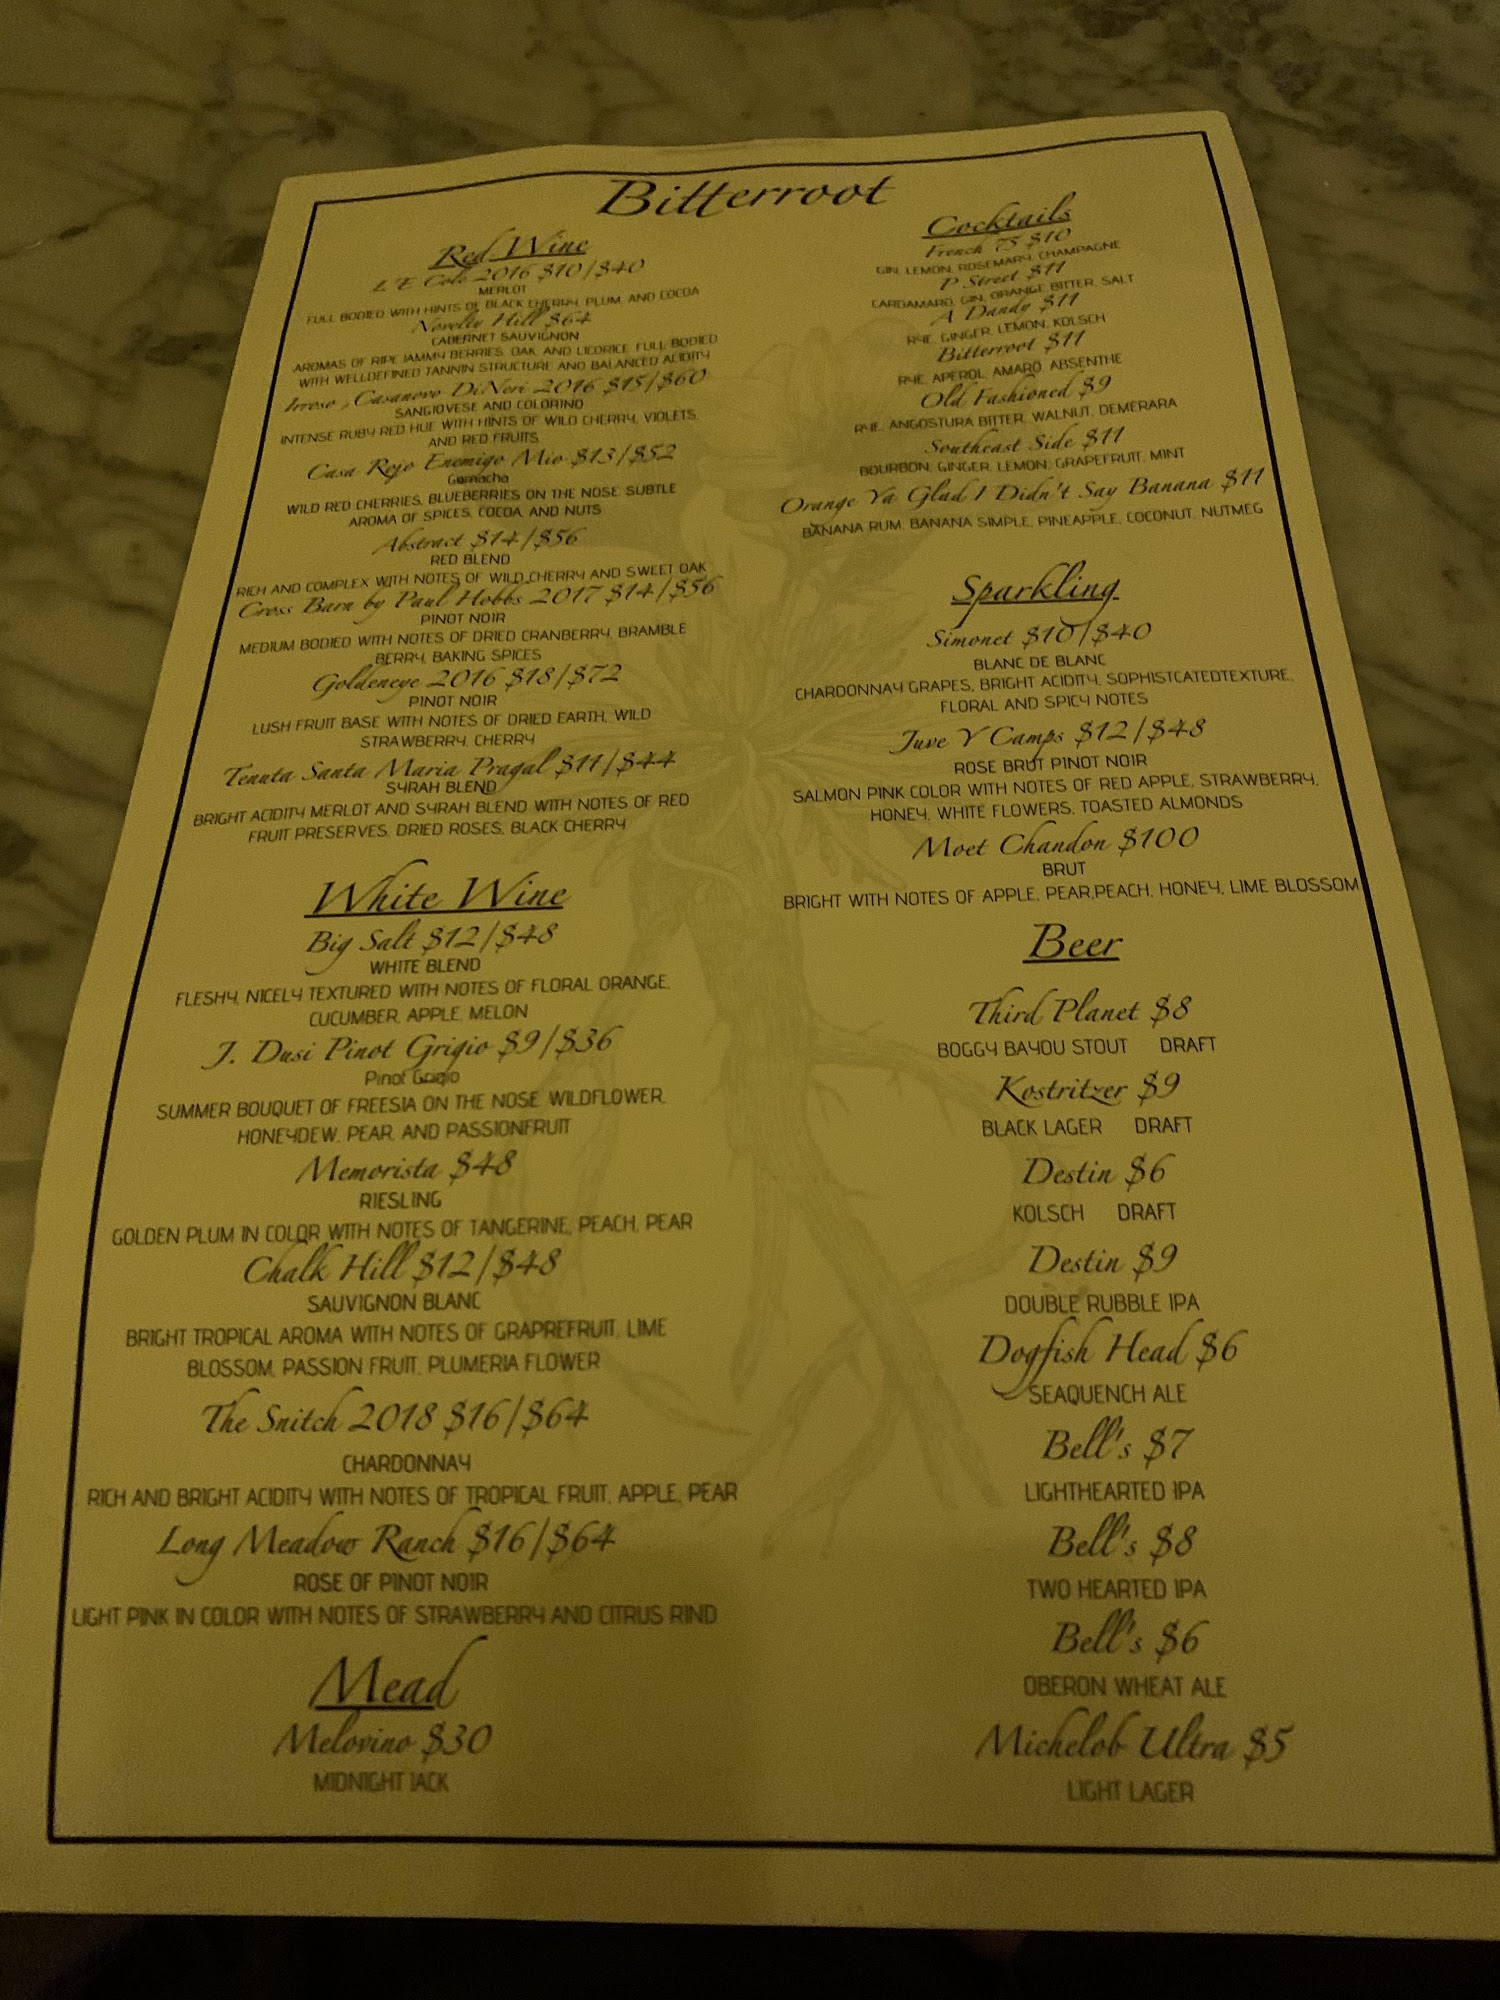 Bitterroot
Red Wine
L'E Cole 2016 $10/$40
MERLOT
FULL BODIED WITH HINTS OF BLACK CHERRY, PLUM, AND COCOA
Novelty Hill $64
CABERNET SAUVIGNON
AROMAS OF RIPE JAMMY BERRIES, OAK AND LICORICE FULL BODIED
WITH WELLDEFINED TANNIN STRUCTURE AND BALANCED ACIDITY
Irroso, Casanovo DiNeri 2016 $15/$60
SANGIOVESE AND COLORINO
INTENSE RUBY RED HUE WITH HINTS OF WILD CHERRY, VIOLETS,
AND RED FRUITS
Casa Rojo Enemigo Mio $13/$52
Garnacha
WILD RED CHERRIES, BLUEBERRIES ON THE NOSE SUBTLE
AROMA OF SPICES, COCOA, AND NUTS
Abstract $14/$56
RED BLEND
RICH AND COMPLEX WITH NOTES OF WILD CHERRY AND SWEET OAK
Cross Barn by Paul Hobbs 2017 $14/$56
PINOT NOIR
MEDIUM BODIED WITH NOTES OF DRIED CRANBERRY, BRAMBLE
BERRY, BAKING SPICES
Goldeneye 2016 $18/$72
PINOT NOIR
LUSH FRUIT BASE WITH NOTES OF DRIED EARTH, WILD
STRAWBERRY, CHERRY
Tenuta Santa Maria Pragal $11/$44
SYRAH BLEND
BRIGHT ACIDITY MERLOT AND SYRAH BLEND WITH NOTES OF RED
FRUIT PRESERVES, DRIED ROSES, BLACK CHERRY
White Wine
Big Salt $12/$48
WHITE BLEND
FLESHY, NICELY TEXTURED WITH NOTES OF FLORAL ORANGE,
CUCUMBER, APPLE, MELON
J. Dusi Pinot Grigio $9/$36
Pinot Grigio
SUMMER BOUQUET OF FREESIA ON THE NOSE WILDFLOWER,
HONEYDEW, PEAR, AND PASSIONFRUIT
Memorista $48
RIESLING
GOLDEN PLUM IN COLOR WITH NOTES OF TANGERINE, PEACH, PEAR
Chalk Hill $12/$48
SAUVIGNON BLANC
BRIGHT TROPICAL AROMA WITH NOTES OF GRAPREFRUIT, LIME
BLOSSOM, PASSION FRUIT, PLUMERIA FLOWER
The Snitch 2018 $16/$64
CHARDONNAY
RICH AND BRIGHT ACIDITY WITH NOTES OF TROPICAL FRUIT, APPLE, PEAR
Long Meadow Ranch $16/$64
ROSE OF PINOT NOIR
LIGHT PINK IN COLOR WITH NOTES OF STRAWBERRY AND CITRUS RIND
Mead
Melovino $30
MIDNIGHT JACK
Cocktails
French 75 $10
GIN, LEMON, ROSEMARY, CHAMPAGNE
P Street $11
CARDAMARO, GIN, ORANGE BITTER, SALT
A Dandy $11
RYE, GINGER, LEMON, KOLSCH
Bitterroot $11
RYE, APEROL, AMARO, ABSENTHE
Old Fashioned $9
RYE, ANGOSTURA BITTER, WALNUT, DEMERARA
Southeast Side $11
BOURBON, GINGER, LEMON, GRAPEFRUIT, MINT
Orange Ya Glad I Didn't Say Banana $11
BANANA RUM, BANANA SIMPLE, PINEAPPLE, COCONUT, NUTMEG
Sparkling
Simonet $10/$40
BLANC DE BLANC
CHARDONNAY GRAPES, BRIGHT ACIDITY, SOPHISTCATEDTEXTURE,
FLORAL AND SPICY NOTES
Juve Y Camps $12/$48
ROSE BRUT PINOT NOIR
SALMON PINK COLOR WITH NOTES OF RED APPLE, STRAWBERRY,
HONEY, WHITE FLOWERS, TOASTED ALMONDS
Moet Chandon $100
BRUT
BRIGHT WITH NOTES OF APPLE, PEAR,PEACH, HONEY, LIME BLOSSOM
Beer
Third Planet $8
BOGGY BAYOU STOUT DRAFT
Kostritzer $9
BLACK LAGER DRAFT
Destin $6
KOLSCH DRAFT
Destin $9
DOUBLE RUBBLE IPA
Dogfish Head $6
SEAQUENCH ALE
Bell's $7
LIGHTHEARTED IPA
Bell's $8
TWO HEARTED IPA
Bell's $6
OBERON WHEAT ALE
Michelob Ultra $5
LIGHT LAGER